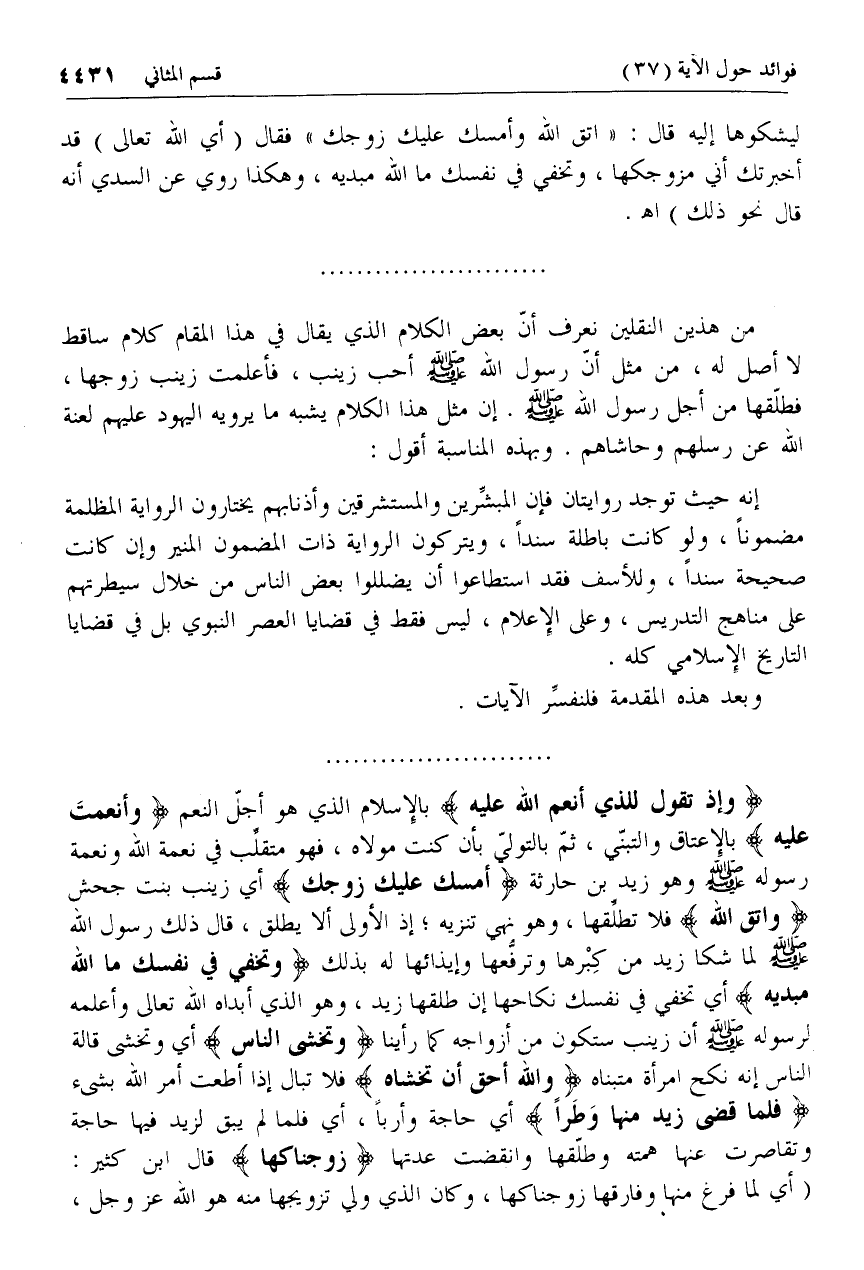 فوائد حول الآية (٣٧) قسم المثاني ٤٤٣١
ليشكوها إليه قال : « اتق الله وأمسك عليك زوجك » فقال ( أي الله تعالى ) قد
أخبرتك أني مزوجكها ، وتخفي في نفسك ما الله مبديه ، وهكذا روي عن السدي أنه
قال نحو ذلك ) اهـ .
.........................
من هذين النقلين نعرف أنّ بعض الكلام الذي يقال في هذا المقام كلام ساقط
لا أصل له ، من مثل أنّ رسول الله ﷺ أحب زينب ، فأعلمت زينب زوجها ،
فطلّقها من أجل رسول الله ﷺ . إن مثل هذا الكلام يشبه ما يرويه اليهود عليهم لعنة
الله عن رسلهم وحاشاهم . وبهذه المناسبة أقول :
إنه حيث توجد روايتان فإن المبشِّرين والمستشرقين وأذنابهم يختارون الرواية المظلمة
مضموناً ، ولو كانت باطلة سنداً ، ويتركون الرواية ذات المضمون المنير وإن كانت
صحيحة سنداً ، وللأسف فقد استطاعوا أن يضللوا بعض الناس من خلال سيطرتهم
على مناهج التدريس ، وعلى الإعلام ، ليس فقط في قضايا العصر النبوي بل في قضايا
التاريخ الإسلامي كله .
وبعد هذه المقدمة فلنفسِّر الآيات .
.........................
﴿ وإذ تقول للذي أنعم الله عليه ﴾ بالإسلام الذي هو أجلّ النعم ﴿ وأنعمتَ
عليه ﴾ بالإعتاق والتبنّي ، ثمّ بالتوليّ بأن كنت مولاه ، فهو متقلِّب في نعمة الله ونعمة
رسوله ﷺ وهو زيد بن حارثة ﴿ أمسك عليك زوجك ﴾ أي زينب بنت جحش
﴿ واتق الله ﴾ فلا تطلِّقها ، وهو نهي تنزيه ؛ إذ الأولى ألا يطلق ، قال ذلك رسول الله
ﷺ لما شكا زيد من كِبْرها وترفُّعها وإيذائها له بذلك ﴿ وتخفي في نفسك ما الله
مبديه ﴾ أي تخفي في نفسك نكاحها إن طلقها زيد ، وهو الذي أبداه الله تعالى وأعلمه
لرسوله ﷺ أن زينب ستكون من أزواجه كما رأينا ﴿ وتخشى الناس ﴾ أي وتخشى قالة
الناس إنه نكح امرأة متبناه ﴿ والله أحق أن تخشاه ﴾ فلا تبال إذا أطعت أمر الله بشىء
﴿ فلما قضى زيد منها وَطَراً ﴾ أي حاجة وأرباً ، أي فلما لم يبق لزيد فيها حاجة
وتقاصرت عنها همته وطلّقها وانقضت عدتها ﴿ زوجناكها ﴾ قال ابن كثير :
( أي لما فرغ منها وفارقها زوجناكها ، وكان الذي ولي تزويجها منه هو الله عز وجل ،